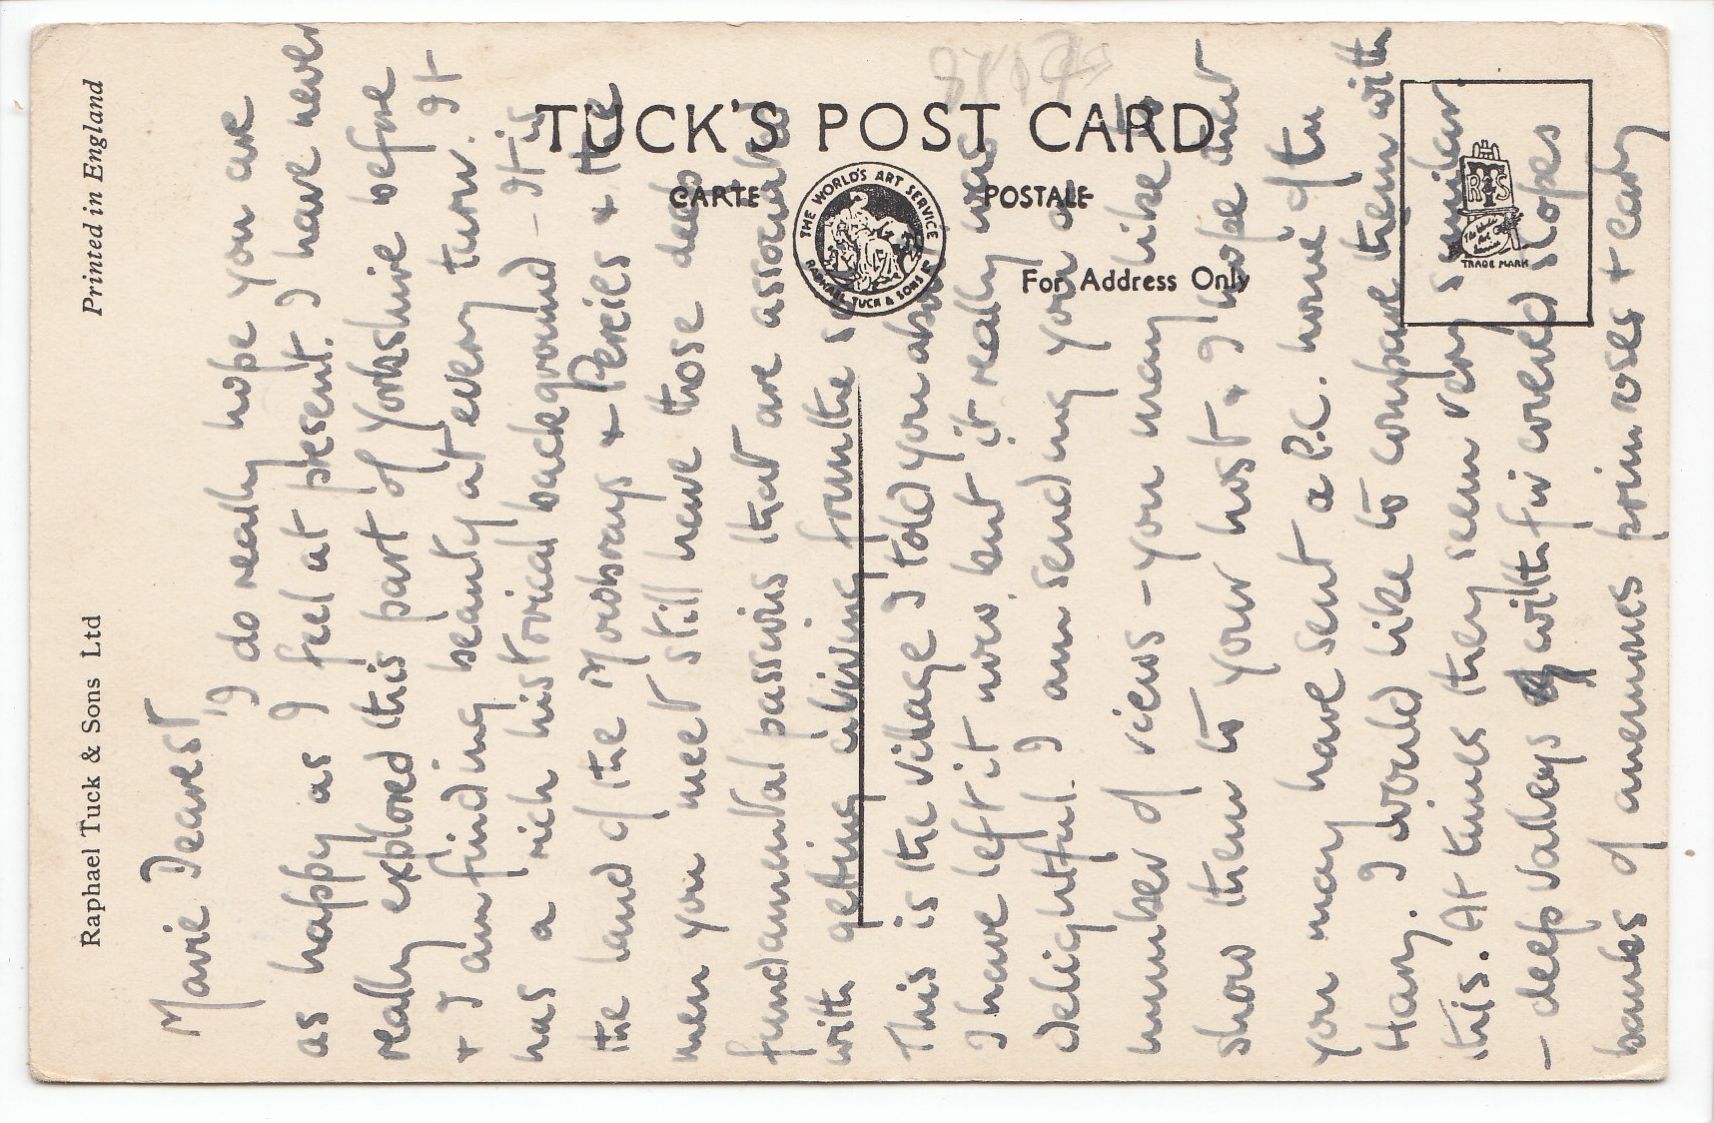 Raphael Tuck & Sons Ltd
Printed in England
TUCK'S POST CARD
CARTE
POSTALE
THE WORLD'S ART SERVICE
RAPHAEL TUCK & SONS LD
For Address Only
TRADE MARK
Marie Dearest,
I do really hope you are
as happy as I feel at present. I have never
really explored this part of Yorkshire before
& I am finding beauty at every turn. It
has a rich historical background - It is
the land of the Mowbrays & Percies & the
men you meet still have those deep
fundamental passions that are associated
with getting a living from the
This is the village I told you about
I have left it now, but it really was
delightful. I am sending you a
number of views - you may like to
show them to your host & I hope that
you may have sent a P.C. home of the
Harz. I would like to compare them with
this. At times they seem very similar.
- deep valleys with fir covered slopes
banks of anemones primroses & early